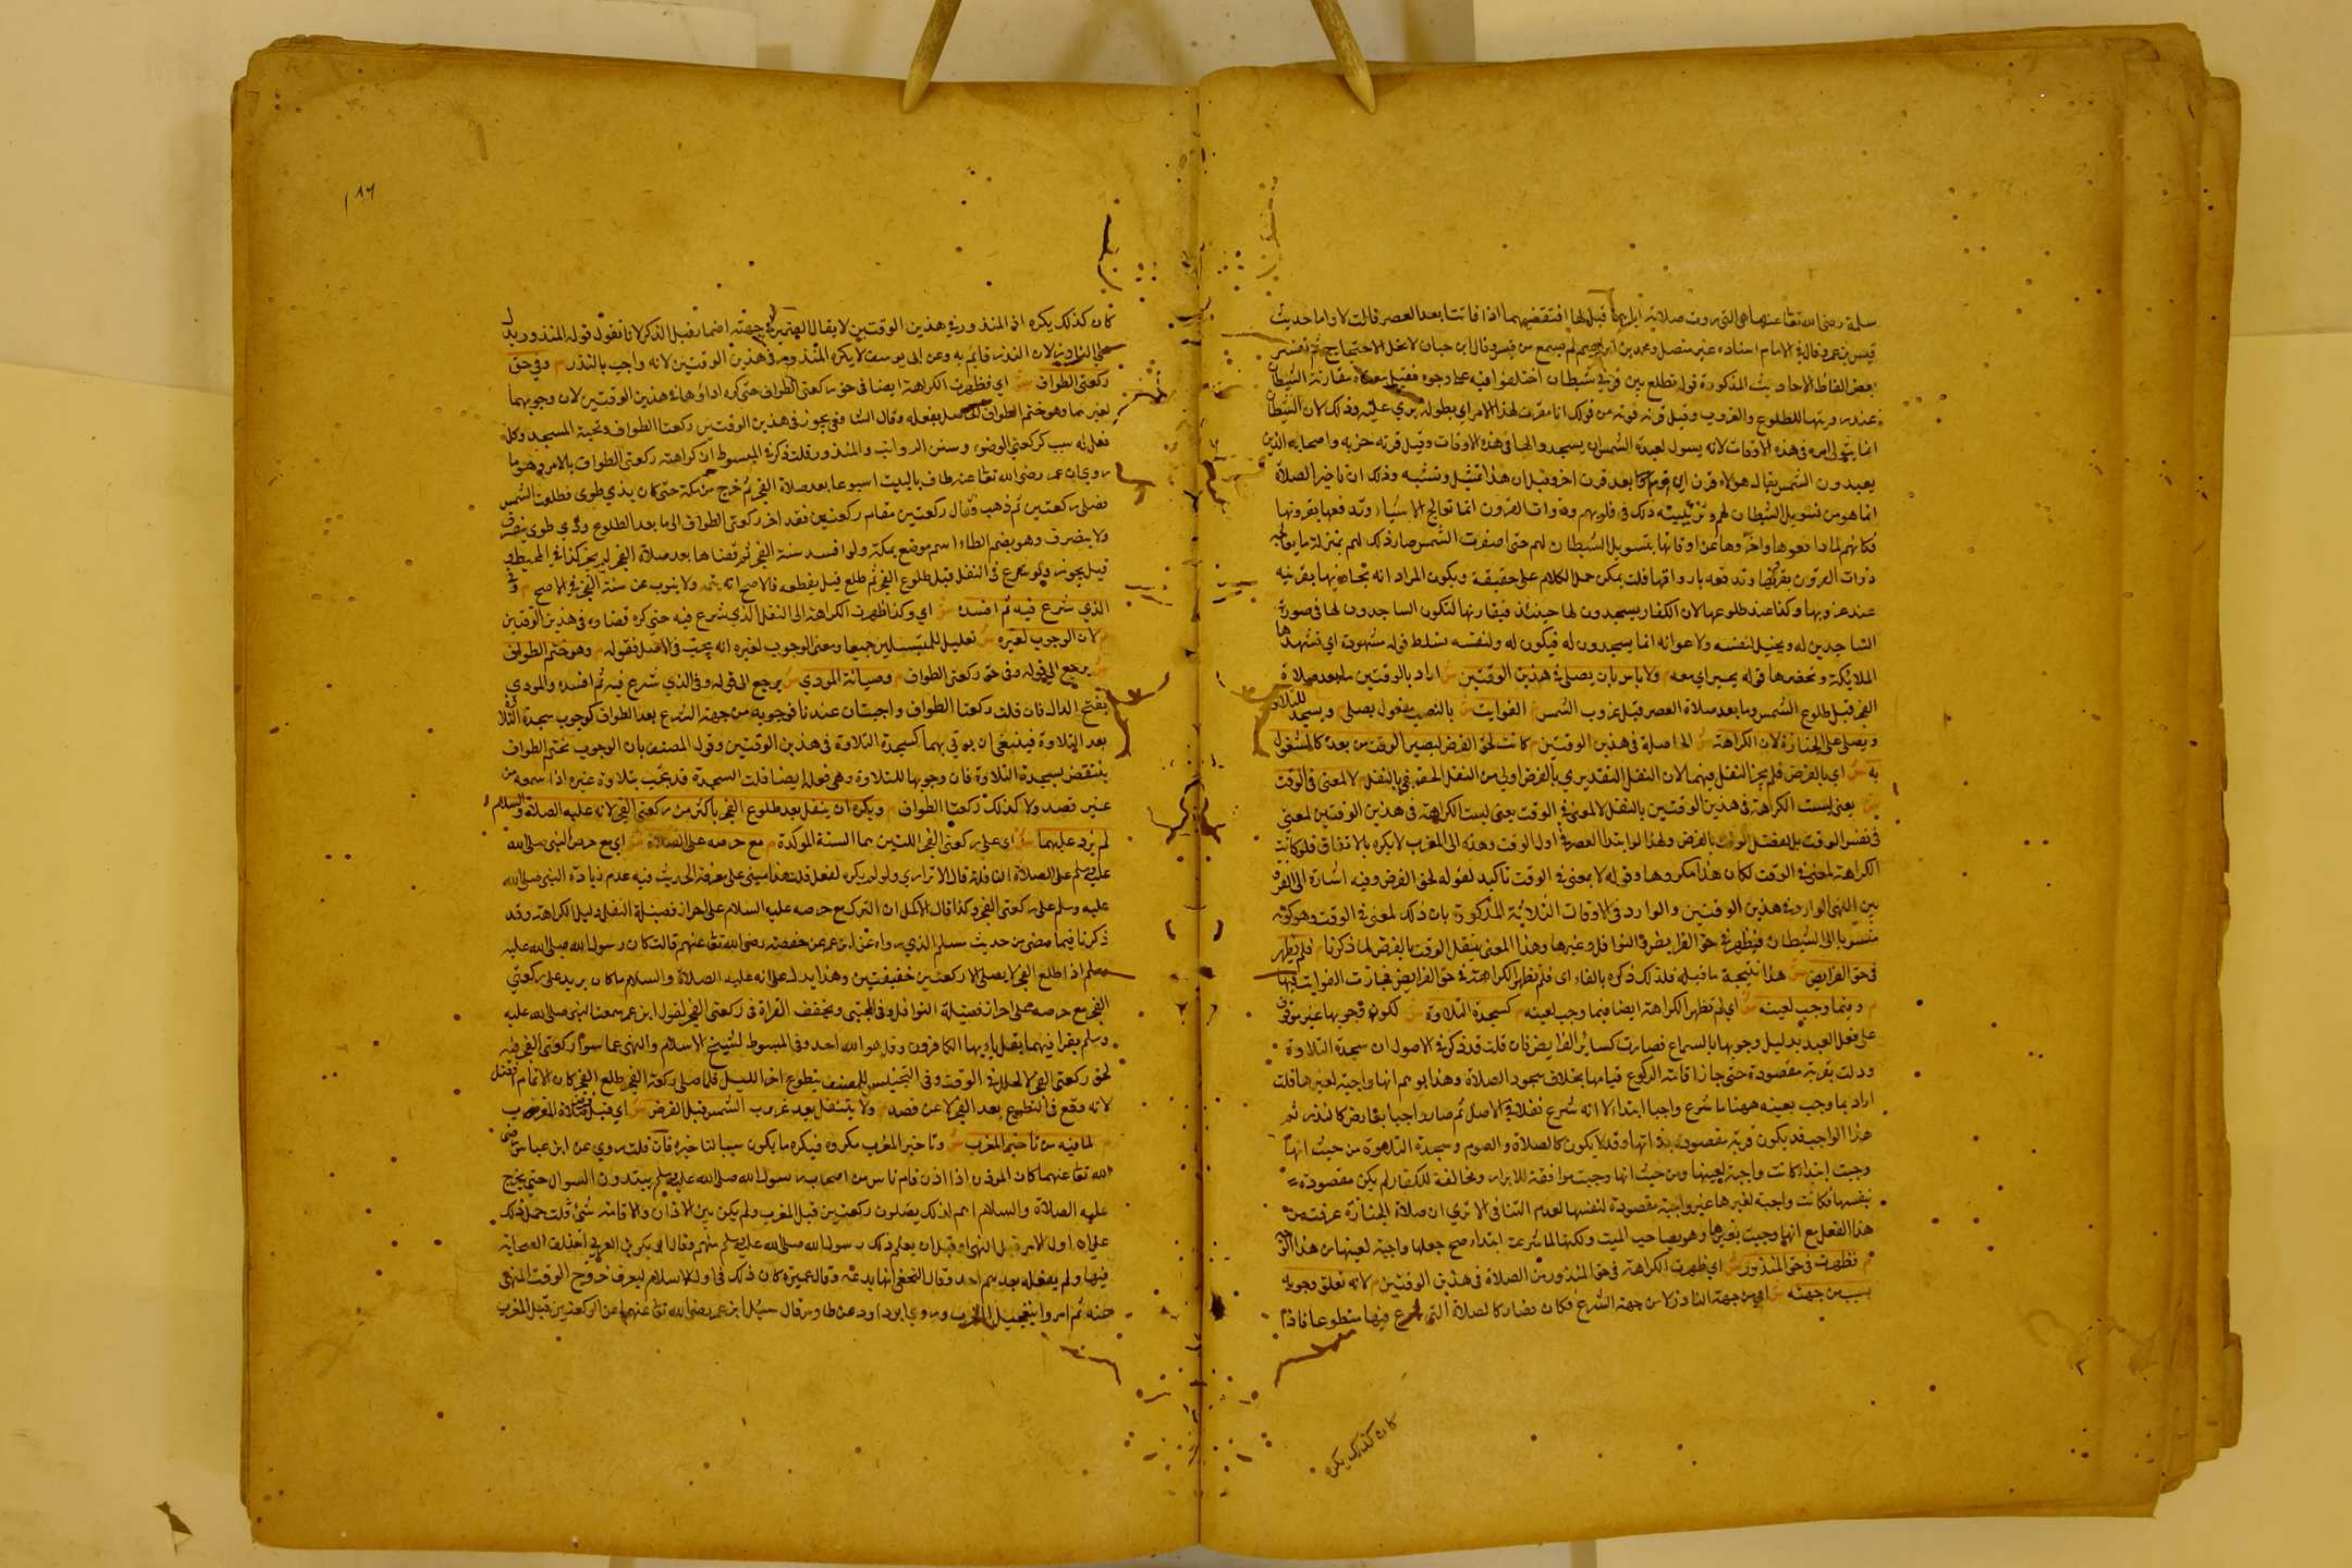 سلمة رضى الله تعا عنها هى التى روت صلاته اياهما قيل لها افنقضيهما اذا فاتتا بعد العصر قالت لا واما حديث
قيس بن عمرو قال الامام اسناده غير متصل ومحمد بن ابراهيم لم يسمع من قيس وقال ابن حبان لا يحل الاحتجاج به تفسير
بعض الفاظ الاحاديث المذكورة قوله تطلع بين قرنى شيطان اختلفوا فيه على وجوه فقيل معناه مقارنة الشيطان
عند دنوها للطلوع والغروب وقيل قرنه قوته من قولك انا مقرن لهذا الامر اى مطوله قوي عليه وذلك لان الشيطان
انما يقوى امره فى هذه الاوقات لانه يسول لعبدة الشمس ان يسجدوا لها فى هذه الاوقات وقيل قرنه حزبه واصحابه الذين
يعبدون الشمس يقال هولاء قرن اى قوم بعد قرن اخر وقيل ان هذا تمثيل وتشبيه وذلك ان تاخير الصلاة
انما هو من تسويل الشيطان لهم وتزيينه ذلك فى قلوبهم وذوات القرون انما تعالج الاشياء وتدفعها بقرونها
فكانهم لما دافعوها واخروها عن اوقاتها بتسويل الشيطان لهم حتى اصفرت الشمس صار ذلك لهم بمنزلة ما يعالجه
ذوات القرون بقرونها وتدفعه بارواقها قلت يمكن حمل الكلام على حقيقة ويكون المراد انه يحاذيها بقرنيه
عند غروبها وكذا عند طلوعها لان الكفار يسجدون لها حينئذ فيقارنها لتكون الساجدون لها فى صورة
الساجدين له ويخيل لنفسه ولاعوانه انما يسجدون له فيكون له ولنفسه تسلط قوله مشهودة اى تشهدها
الملائكة وتحضرها قوله م ولا باس بان يصلى فى هذين الوقتين ش اراد بالوقتين ما بعد صلاة
الفجر قبل طلوع الشمس وما بعد صلاة العصر قبل غروب الشمس م الفوايت ش بالنصب مفعول يصلى م ويسجد للتلاوة
ويصلى على الجنازة لان الكراهة ش الحاصلة فى هذين الوقتين م كانت لحق الفرض ليصير الوقت من بعده كالمشغول
به ش اى بالفرض فلم يجز النفل فيهما لان النفل التقديري بالفرض اولى من النفل الحقيقى بالنفل م لا لمعنى فى الوقت
ش يعنى ليست الكراهة فى هذين الوقتين بالنفل لا لمعنى فى الوقت يعنى ليست الكراهة فى هذين الوقتين لمعنى
فى نفس الوقت بالفرض ولهذا لو ابتدا العصر فى اول الوقت ومده الى المغرب لا يكره بالاتفاق فلو كانت
الكراهة لمعنى فى الوقت لكان هذا مكروها وقوله لا بمعنى فى الوقت تاكيد لقوله لحق الفرض وفيه اشارة الى الفرق
بين النهى الوارد فى هذين الوقتين والوارد فى الاوقات الثلاثة المذكورة بان ذلك لمعنى فى الوقت وهو كونه
منسوبا الى الشيطان فيظهر فى حق الفرايض والنوافل وغيرها وهذا المعنى بشغل الوقت بالفرض لما ذكرنا م فلم تظهر
فى حق الفرايض ش هذا نتيجة ما قبله فلذلك ذكره بالفاء اى فلم تظهر الكراهة فى حق الفرايض فجازت الفوايت فيها
م وفيما وجب لعينه ش اى لم تظهر الكراهة ايضا فيما وجب لعينه م كسجدة التلاوة ش لكون وجوبها غير موقوف
على فعل العبد بدليل وجوبها بالسماع فصارت كساير الفرايض فان قلت قد ذكر فى الاصول ان سجدة التلاوة
ودلت بقربة مقصودة حتى جاز اقامة الركوع قيامها بخلاف سجود الصلاة وهذا يوهم انها واجبة لغيرها قلت
اراد بما وجب بعينه ههنا ما شرع واجبا ابتداء لا انه شرع نفلا فى الاصل ثم صار واجبا بعارض كالنذر ثم
هذا الواجب قد يكون قربة مقصودة بذاتها وقد لا يكون كالصلاة والصوم وسجدة التلاوة من حيث انها
وجبت ابتداء كانت واجبة لعينها ومن حيث انها وجبت موافقة للابرار ومخالفة للكفار لم يكن مقصودة
بنفسها فكانت واجبة لغيرها غير واجبة مقصودة لنفسها لعدم التنافى الا ترى ان صلاة الجنازة عرفت من
هذا الفعل مع انها وجبت لغيرها وهو صاحب الميت ولكنها لما شرعت ابتداء صح جعلها واجبة لعينها من هذا الوجه
م فظهرت فى حق المنذور ش اى ظهرت الكراهة فى حق المنذور من الصلاة فى هذين الوقتين م لانه تعلق وجوبه
بسبب من جهته ش اى من جهة الناذر لا من جهة الشرع فكان فصار كالصلاة التى شرع فيها متطوعا فاذا
كان كذلك يكره
١٨٦
كان كذلك يكره اذ المنذور فى هذين الوقتين لا يقال الضمير فى جهته اضمار قبل الذكر لانا نقول قوله المنذور يدل
على الناذر لان النذر قايم به وعن ابى يوسف لا يكره المنذور فى هذين الوقتين لانه واجب بالنذر م وفى حق
ركعتى الطواف ش اى فظهرت الكراهة ايضا فى حق ركعتى الطواف حتى كره اداؤها فى هذين الوقتين لان وجوبهما
لغيرهما وهو ختم الطواف الحاصل بفعله وقال الشافعى يجوز فى هذين الوقتين ركعتا الطواف وتحية المسجد وكل
فعل له سبب كركعتى الوضوء وسنن الرواتب والمنذور قلت ذكر فى المبسوط ان كراهته ركعتى الطواف بالاثر وهو ما
روى ان عمر رضى الله تعا عنه طاف بالبيت اسبوعا بعد صلاة الفجر ثم خرج من مكة حتى كان بذى طوى فطلعت الشمس
فصلى ركعتين ثم ذهب وقال ركعتين مقام ركعتين فقد اخر ركعتى الطواف الى ما بعد الطلوع وذى طوى ينصرف
ولا ينصرف وهو بضم الطاء اسم موضع بمكة ولو افسد سنة الفجر ثم قضاها بعد صلاة الفجر لم يجز كذا فى المحيط و
قيل يجوز ولو شرع فى النفل قبل طلوع الفجر ثم طلع قيل يقطعه فالاصح انه يتمه ولا ينوب عن سنة الفجر فى الاصح م وفى
الذي شرع فيه ثم افسده ش اى وكذا ظهرت الكراهة الى النفل الذى شرع فيه حتى كره قضاؤه فى هذين الوقتين
م لان الوجوب لغيره ش تعليل للمسئلتين جميعا ومعنى الوجوب لغيره انه يجب فى الاصل فقوله م وهو ختم الطواف
ش يرجع الى قوله وفى حق ركعتى الطواف م وصيانة المودي ش يرجع الى قوله وفى الذى شرع فيه ثم افسده والمودى
بفتح الدال فان قلت ركعتا الطواف واجبتان عندنا فوجوبه من جهة الشرع بعد الطواف كوجوب سجدة التلاوة
بعد التلاوة فينبغى ان يوتى بهما كسجدة التلاوة فى هذين الوقتين وقول المصنف بان الوجوب بختم الطواف
ينتقض بسجدة التلاوة فان وجوبها للتلاوة وهى فعله ايضا قلت السجدة قد تجب بتلاوة غيره اذا سمعه من
غير قصد ولا كذلك ركعتا الطواف م ويكره ان يتنفل بعد طلوع الفجر باكثر من ركعتى الفجر لانه عليه الصلاة والسلام
لم يزد عليهما ش اى على ركعتى الفجر اللتين هما السنة المؤكدة م مع حرصه على الصلاة ش اى مع حرص النبى صلى الله
عليه وسلم على الصلاة النافلة قال الاترارى ولو لم يكره لفعل قلت هذا مبنى على معرفة الحديث فيه عدم زيادة النبى صلى الله
عليه وسلم على ركعتى الفجر وكذا قال الاكمل ان الترك مع حرصه عليه السلام على احراز فضيلة النفل دليل الكراهة وقد
ذكرنا فيما مضى من حديث مسلم الذى رواه عن ابن عمر عن حفصة رضى الله تعا عنهم قالت كان رسول الله صلى الله عليه
وسلم اذا طلع الفجر لا يصلى الا ركعتين خفيفتين وهذا يدل على انه عليه الصلاة والسلام ما كان يزيد على ركعتى
الفجر مع حرصه على احراز فضيلة النوافل وفى المجتبى ويخفف القراة فى ركعتى الفجر لقول ابن عمر سمعت النبى صلى الله عليه
وسلم يقرا فيهما بقل ياايها الكافرون وقل هو الله احد وفى المبسوط لشيخ الاسلام والنهى عما سوى ركعتى الفجر فيه
لحق ركعتى الفجر لا لخلل فى الوقت وفى التجنيس للمصنف يتطوع اخر الليل فلما صلى ركعة الفجر طلع الفجر كان الاتمام افضل
لانه وقع فى التطوع بعد الفجر لا عن قصد م ولا يتنفل بعد غروب الشمس قبل الفرض ش اى قبل صلاة المغرب
م لما فيه من تاخير المغرب ش وتاخير المغرب مكروه فيكره ما يكون سببا لتاخيره فان قلت روي عن ابن عباس رضى
الله تعا عنهما كان المؤذن اذا اذن قام ناس من اصحاب رسول الله صلى الله عليه وسلم يبتدرون السوارى حتى يخرج
عليه الصلاة والسلام وهم كذلك يصلون ركعتين قبل المغرب ولم يكن بين الاذان والاقامة شئ قلت حمل ذلك
على انه اول الامر قبل النهى او قبل ان يعلم ذلك رسول الله صلى الله عليه وسلم منهم وقال ابو بكر بن العربى اختلف الصحابة
فيها ولم يفعله بعدهم احد وقال النخعى انها بدعة وقال غيره كان ذلك فى اول الاسلام ليعرف خروج الوقت المنهى
عنه ثم امروا بتعجيل المغرب وروى ابو داود عن طاوس قال سئل ابن عمر رضى الله تعا عنهما عن الركعتين قبل المغرب